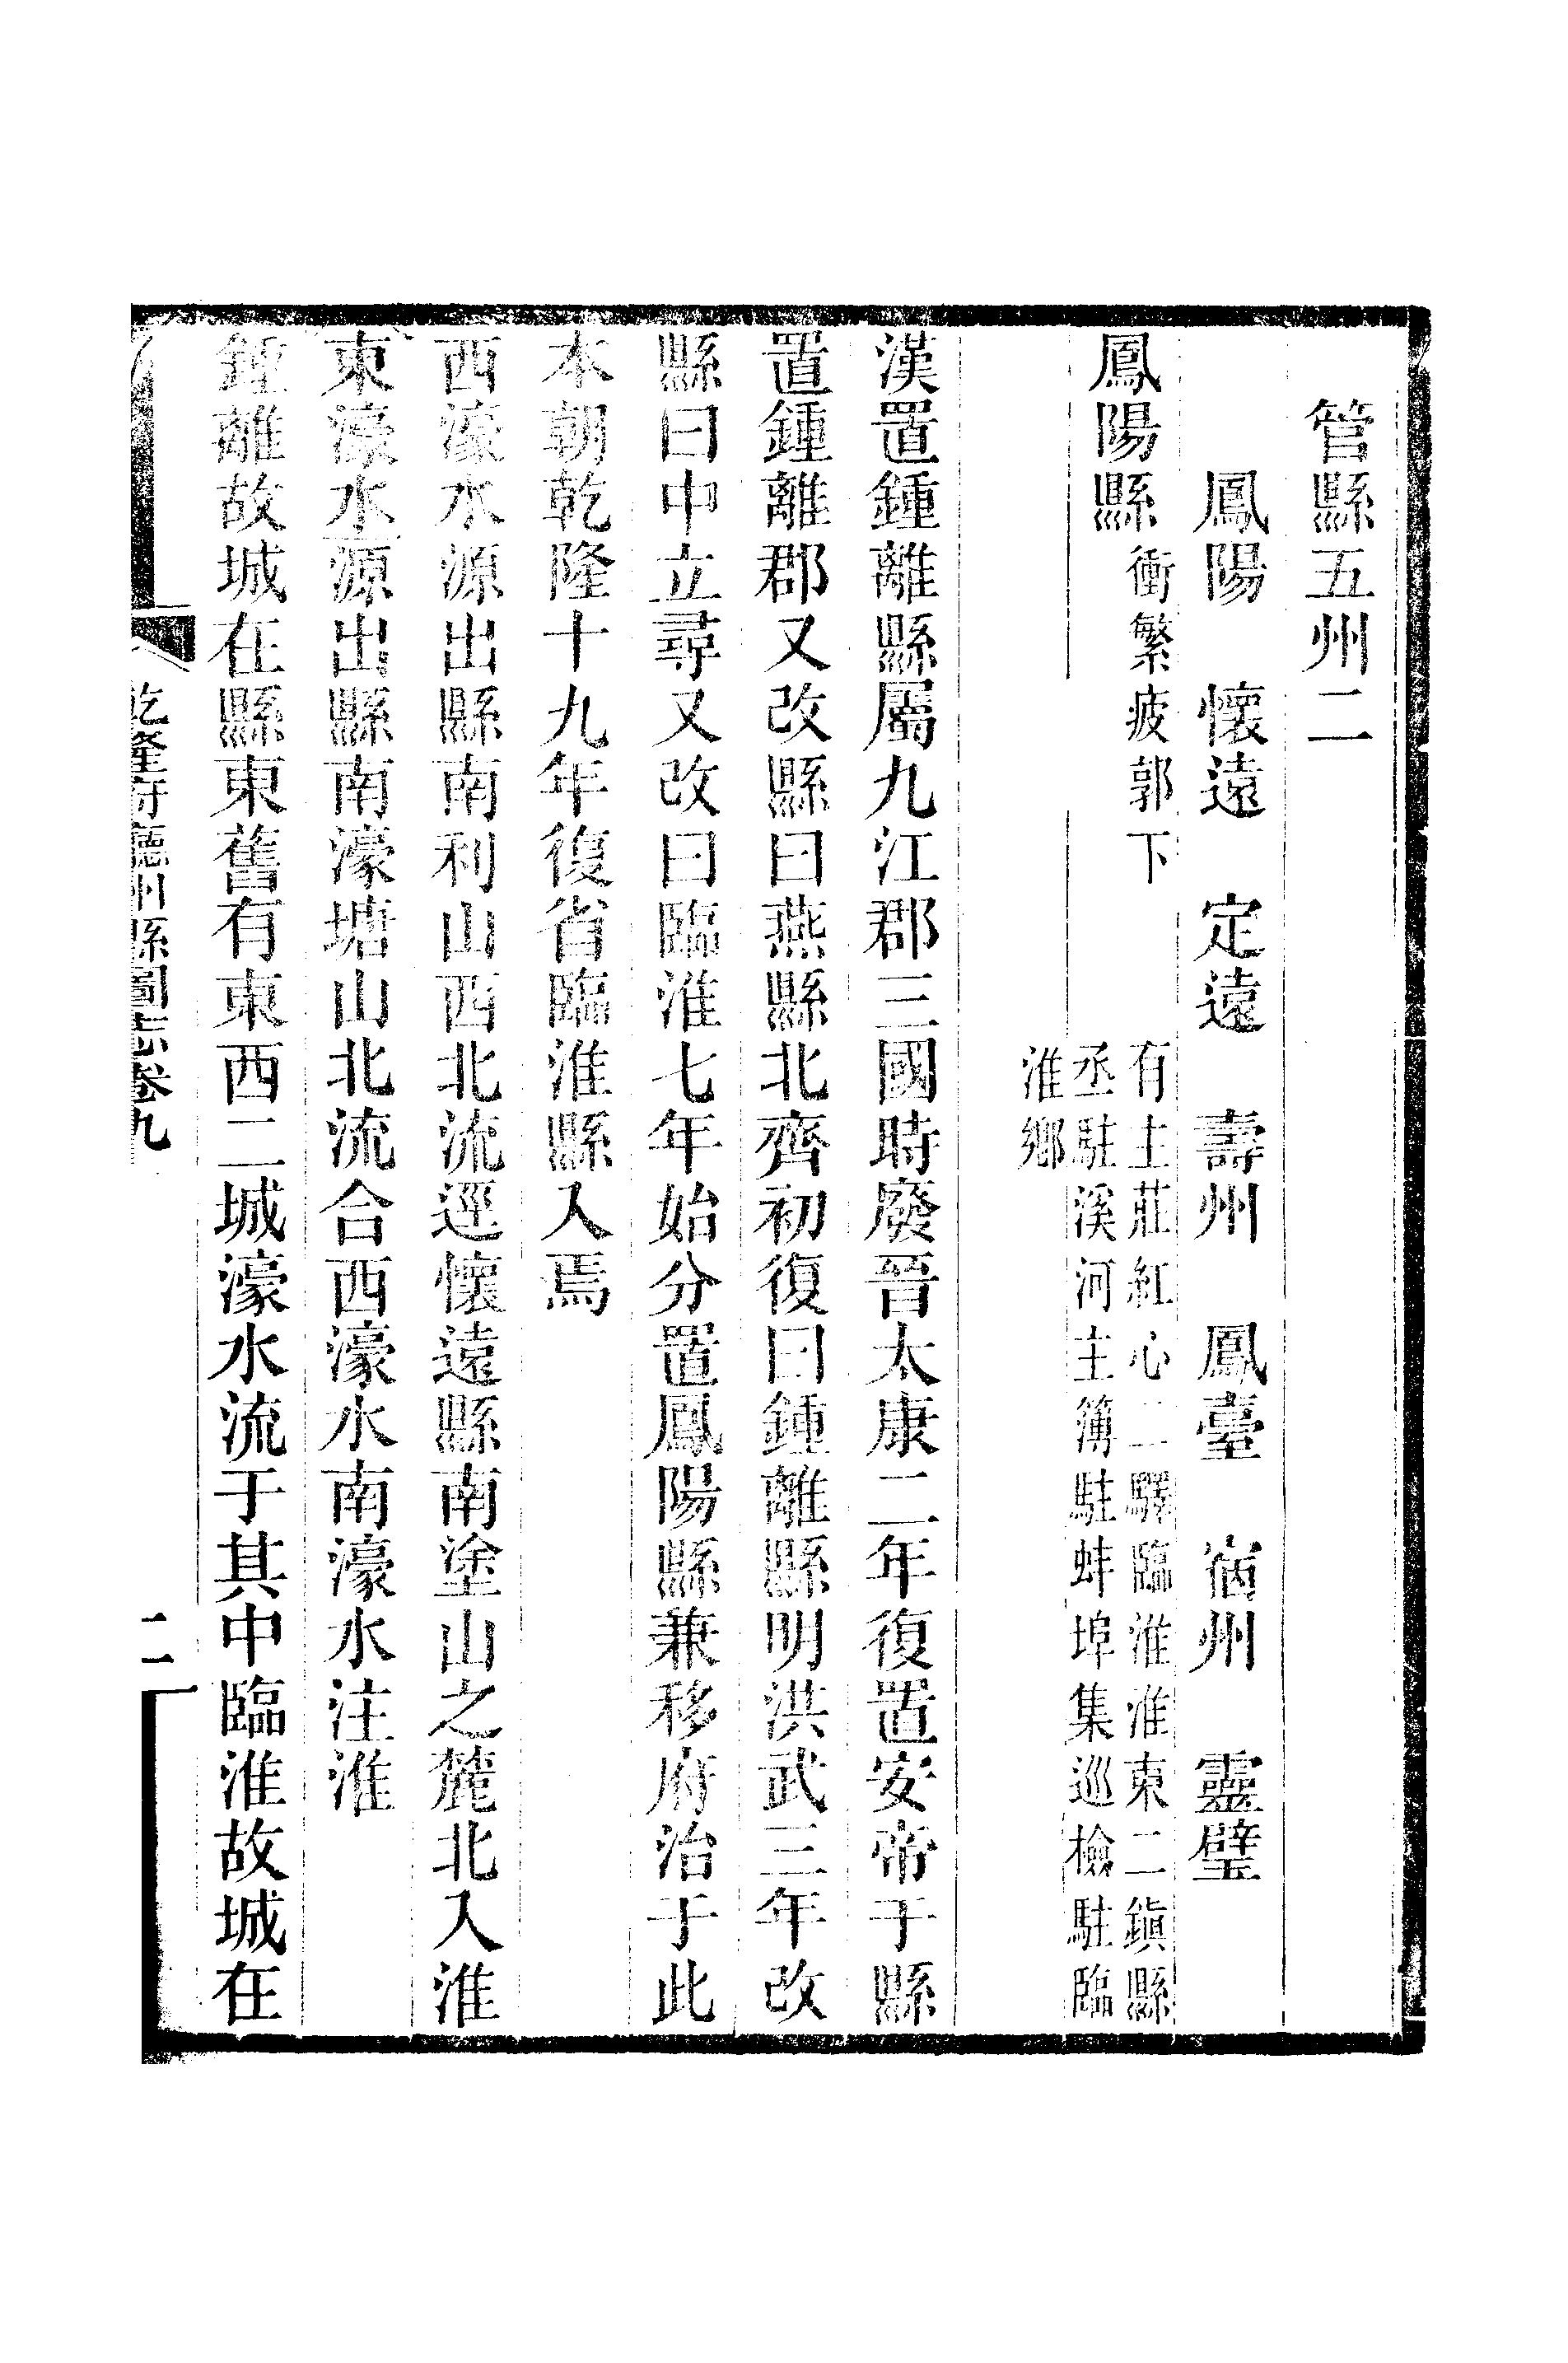 管縣五州二
鳳陽　懷遠　定遠　壽州　鳳臺　宿州　靈璧
鳳陽縣衝繁疲郭下
有土莊紅心二驛臨淮淮東二鎮縣
丞駐溪河主簿駐蚌埠集巡檢駐臨
淮鄉
漢置鍾離縣屬九江郡三國時廢晉太康二年復置安帝于縣
置鍾離郡又改縣曰燕縣北齊初復曰鍾離縣明洪武三年改
縣曰中立尋又改曰臨淮七年始分置鳳陽縣兼移府治于此
本朝乾隆十九年復省臨淮縣入焉
西濠水源出縣南利山西北流逕懷遠縣南塗山之麓北入淮
東濠水源出縣南濠塘山北流合西濠水南濠水注淮
鍾離故城在縣東舊有東西二城濠水流于其中臨淮故城在
乾隆府廳州縣圖志卷九
二